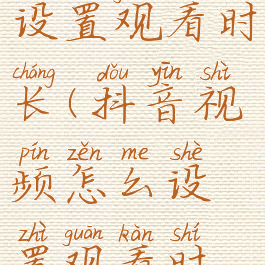 设置观看时
cháng dǒu yīn shì
长(抖音视
pín zěn me shè
频怎么设
zhì guān kàn shí
置观看时